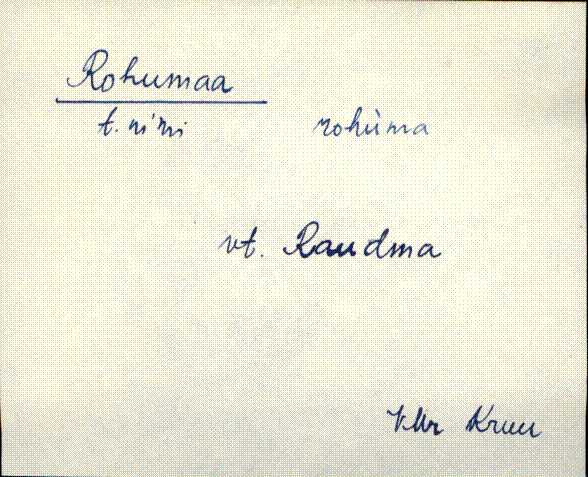 Rohumaa
t. nimi rohùma
vt. Raudma
VMr Kruu